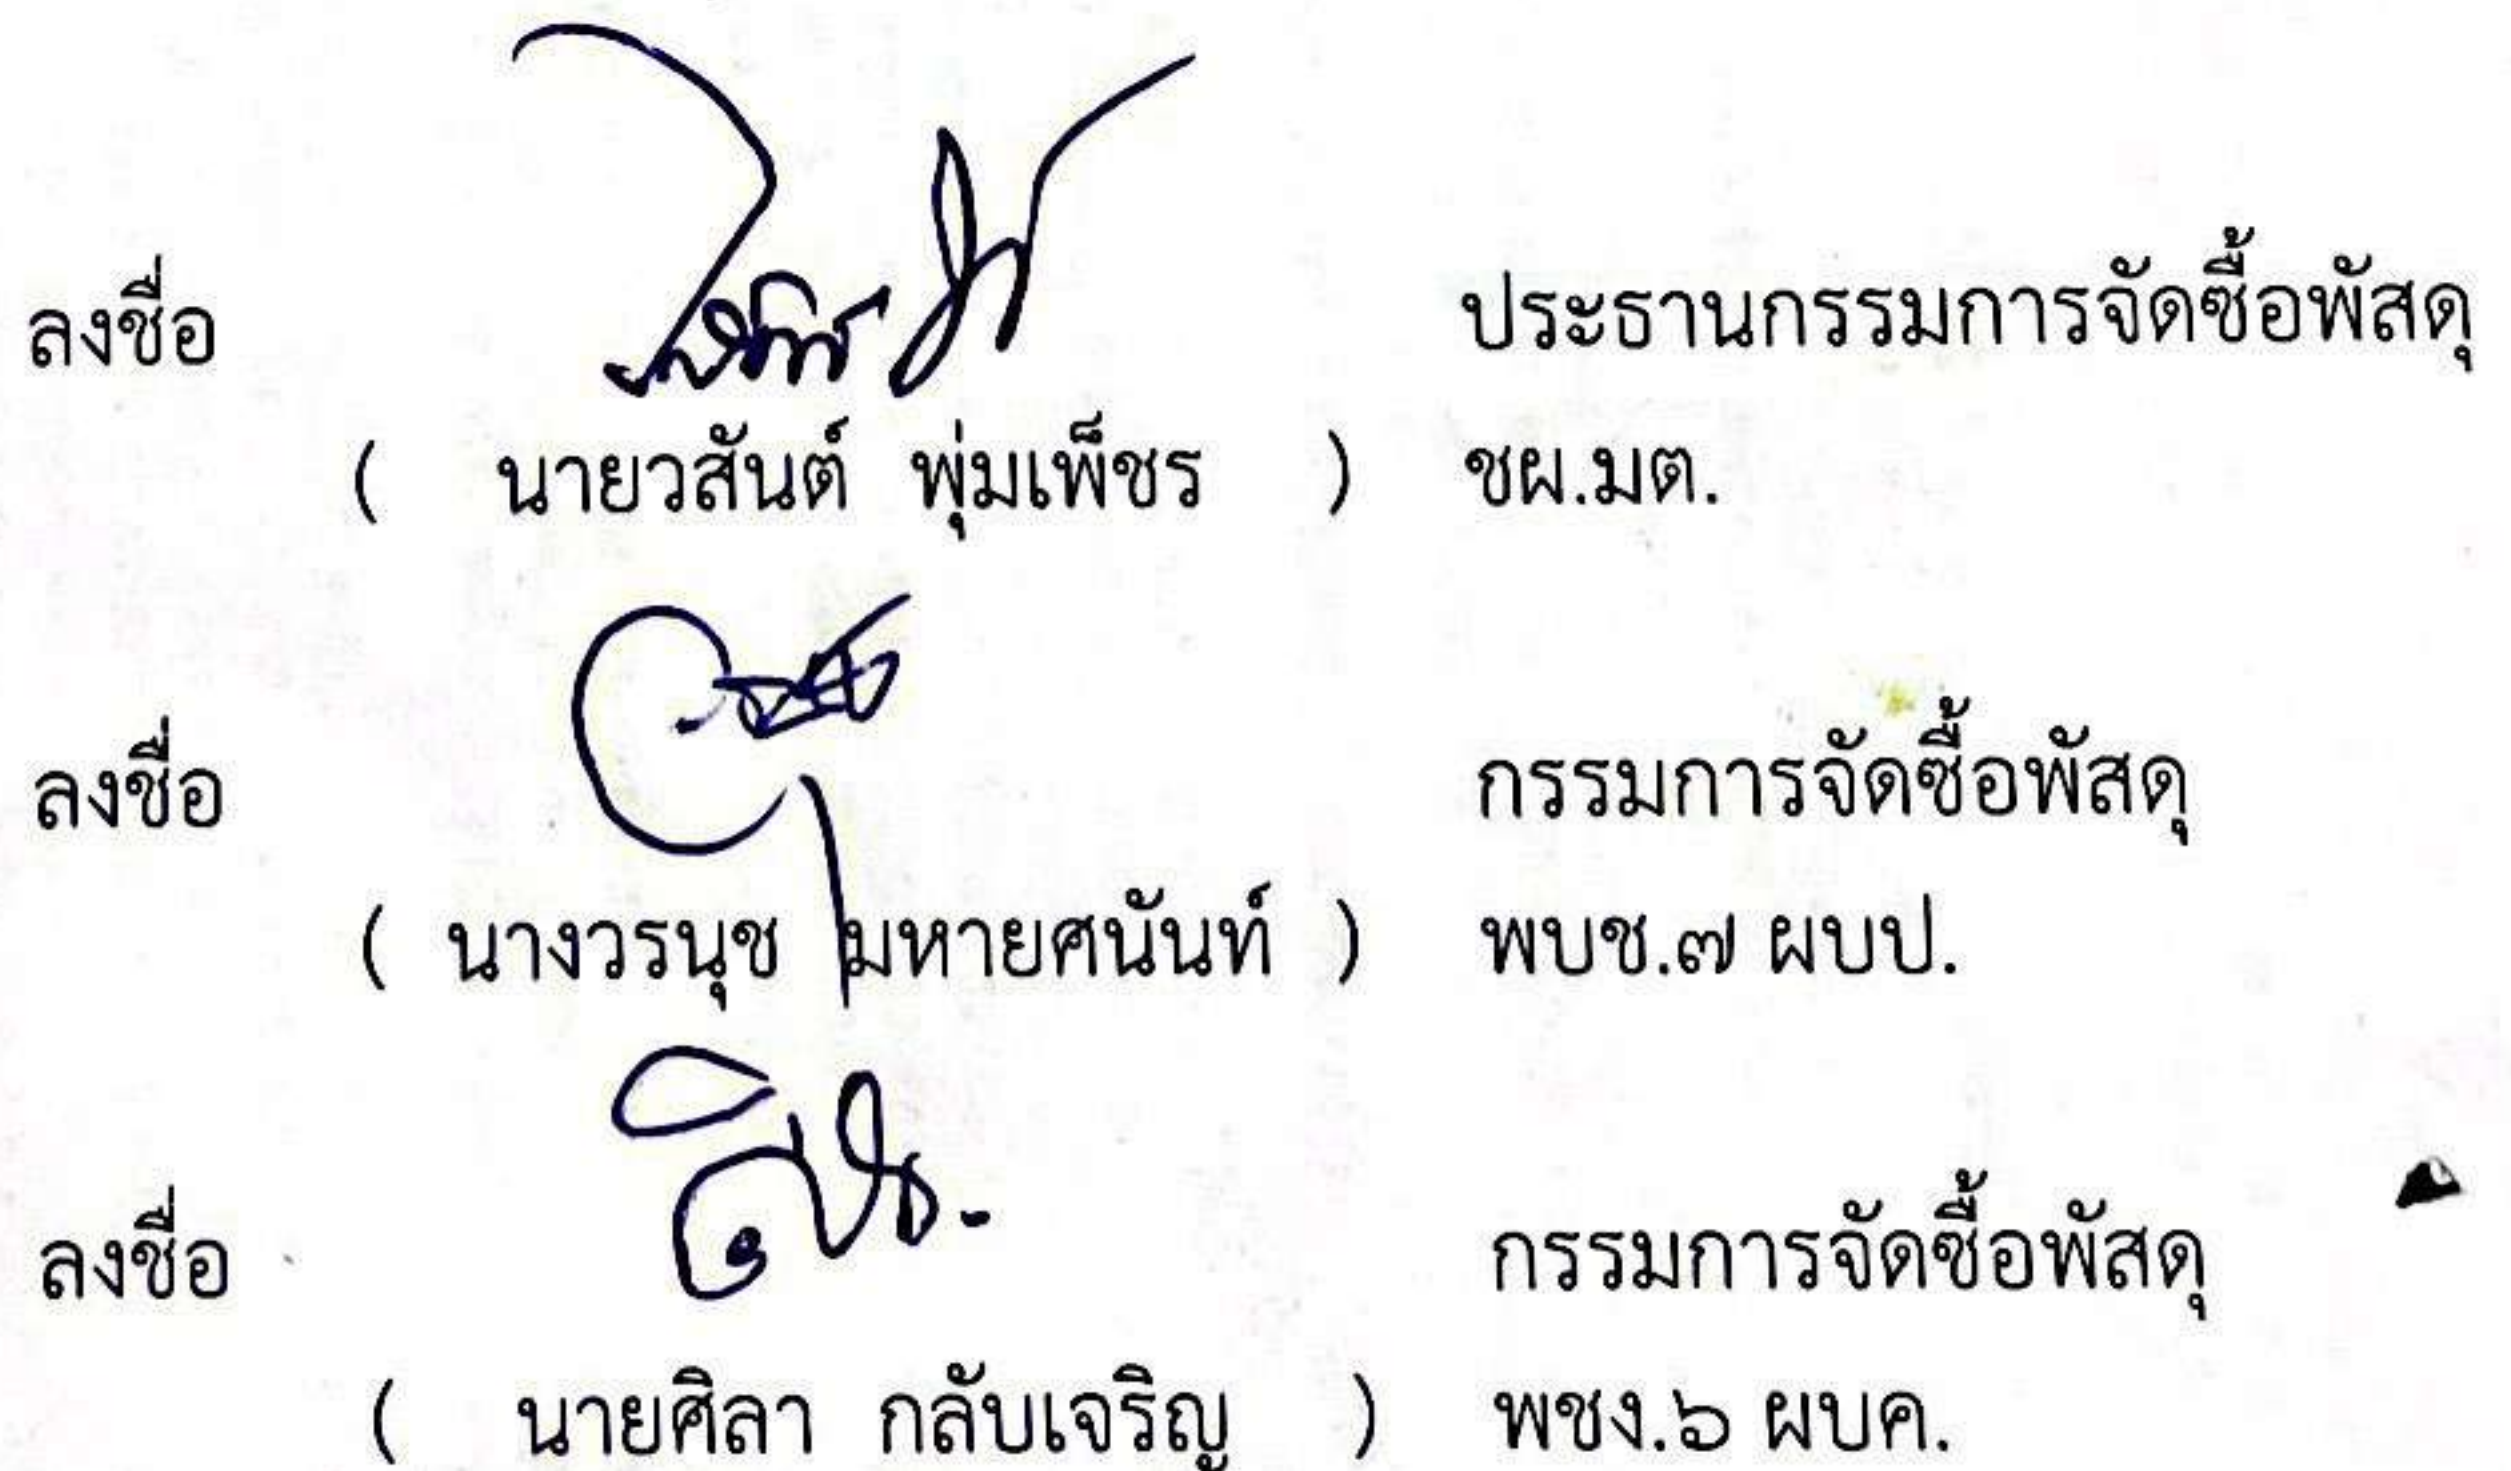 ลงชื่อ ประธานกรรมการจัดซื้อพัสดุ
( นายวสันต์ พุ่มเพ็ชร ) ชผ.มต.
ลงชื่อ กรรมการจัดซื้อพัสดุ
( นางวรนุช มหายศนันท์ ) พบช.๗ ผบป.
ลงชื่อ กรรมการจัดซื้อพัสดุ
( นายศิลา กลับเจริญ ) พชง.๖ ผบค.